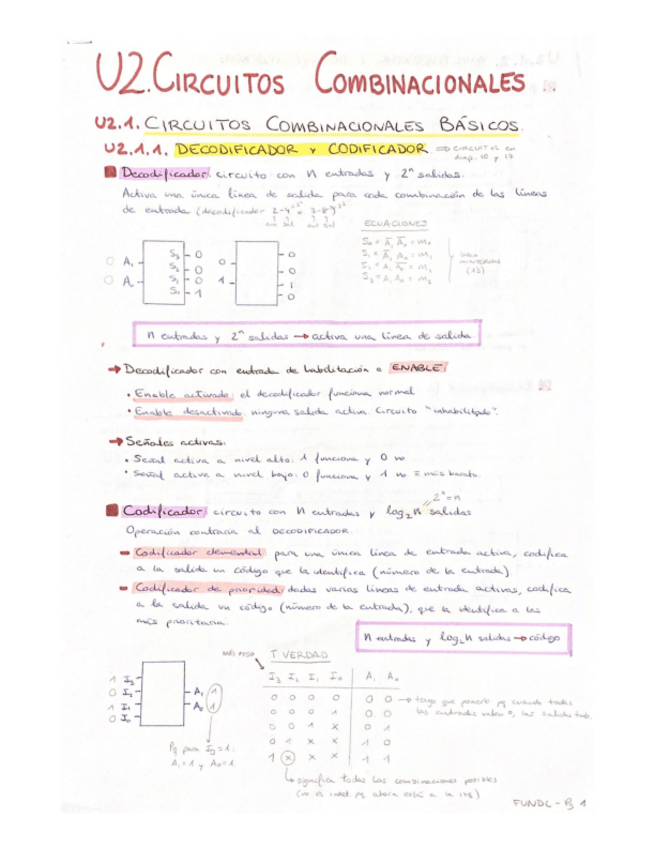 U2. CIRCUITOS COMBINACIONALES
U2.1. CIRCUITOS COMBINACIONALES BÁSICOS.
U2.1.1. DECODIFICADOR Y CODIFICADOR ⇒ CIRCUITOS en diap. 10 y 17
Decodificador: circuito con n entradas y 2ⁿ salidas.
Activa una única línea de salida para cada combinación de las líneas
de entrada (decodificador 2-4 o 3-8)
ent sal ent sal
ECUACIONES
S₀ = A̅₁ A̅₀ = m₀
S₁ = A̅₁ A₀ = m₁
S₂ = A₁ A̅₀ = m₂
S₃ = A₁ A₀ = m₃
0 A₁ S₃ 0
S₂ 0
0 A₀ S₁ 0
S₀ 1
0 0
0
1 1
0
n entradas y 2ⁿ salidas → activa una línea de salida
→ Decodificador con entrada de habilitación o ENABLE:
• Enable activado: el decodificador funciona normal
• Enable desactivado: ninguna salida activa. Circuito "inhabilitado".
→ Señales activas:
• Señal activa a nivel alto: 1 funciona y 0 no
• Señal activa a nivel bajo: 0 funciona y 1 no ≡ más barato.
2ˣ=n
Codificador: circuito con n entradas y log₂n salidas
Operación contraria al DECODIFICADOR.
Codificador elemental: para una única línea de entrada activa, codifica
a la salida un código que la identifica (número de la entrada).
Codificador de prioridad: dadas varias líneas de entrada activas, codifica
a la salida un código (número de la entrada), que la identifica a las
más prioritaria.
n entradas y log₂n salidas → código
más peso
T VERDAD
I₃ I₂ I₁ I₀ A₁ A₀
0 0 0 0 0 0 → tengo que ponerlo pq cuando todas las entradas valen 0, las salidas tmb.
0 0 0 1 0 0
0 0 1 x 0 1
0 1 x x 1 0
1 x x x 1 1
1 I₃
0 I₂ A₁ 1
1 I₁ A₀ 1
0 I₀
Pq para I₃=1:
A₁=1 y A₀=1.
significa todas las combinaciones posibles
FUNDC - Pg 1